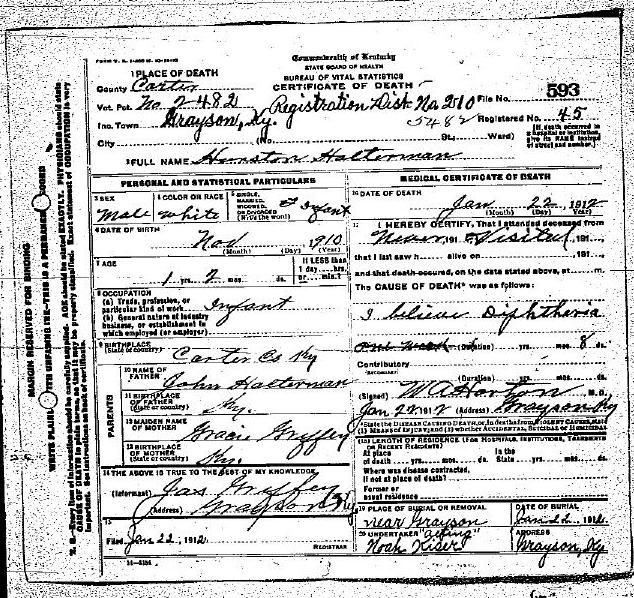 Commonwealth of Kentucky
STATE BOARD OF HEALTH
BUREAU OF VITAL STATISTICS
CERTIFICATE OF DEATH
1 PLACE OF DEATH
County Carter
Vot. Pct. No 2-482 (Registration Dist. No. 210 File No. 593
Inc. Town Grayson, Ky. 5482 Registered No. 45
City (No. St.; Ward)
[If death occurred in a hospital or institution, give its NAME instead of street and number.]
2 FULL NAME Hunston Halterman
PERSONAL AND STATISTICAL PARTICULARS
3 SEX
Male
4 COLOR OR RACE
white
5 SINGLE, MARRIED, WIDOWED, OR DIVORCED (Write the word)
Infant
6 DATE OF BIRTH
Nov 1910
(Month) (Day) (Year)
7 AGE
1 yrs. 2 mos. ds.
If LESS than 1 day ... hrs. or ... min.?
8 OCCUPATION
(a) Trade, profession, or particular kind of work Infant
(b) General nature of industry business, or establishment in which employed (or employer)
9 BIRTHPLACE
(State or country) Carter Co Ky
PARENTS
10 NAME OF FATHER John Halterman
11 BIRTHPLACE OF FATHER (State or country) Ky.
12 MAIDEN NAME OF MOTHER Gracie Griffey
13 BIRTHPLACE OF MOTHER (State or country) Ky.
14 THE ABOVE IS TRUE TO THE BEST OF MY KNOWLEDGE
(Informant) Jas Griffey
(Address) Grayson Ky
15
Filed Jan 22, 1912
REGISTRAR
MEDICAL CERTIFICATE OF DEATH
16 DATE OF DEATH
Jan 22, 1912
(Month) (Day) (Year)
17 I HEREBY CERTIFY, That I attended deceased from
Never 191 Visited 191
that I last saw h alive on 191
and that death occurred, on the date stated above, at m.
The CAUSE OF DEATH* was as follows:
I believe Diphtheria
one week (Duration) yrs. mos. 8 ds.
Contributory
(SECONDARY)
(Duration) yrs. mos. ds.
(Signed) W A Horton M.D.
Jan 22, 1912 (Address) Grayson Ky
*State the DISEASE CAUSING DEATH, or, in deaths from VIOLENT CAUSES, state (1) MEANS OF INJURY; and (2) whether ACCIDENTAL, SUICIDAL or HOMICIDAL
18 LENGTH OF RESIDENCE (FOR HOSPITALS, INSTITUTIONS, TRANSIENTS OR RECENT RESIDENTS)
At place of death yrs. mos. ds. In the State yrs. mos. ds.
Where was disease contracted, if not at place of death?
Former or usual residence
19 PLACE OF BURIAL OR REMOVAL
near Grayson
DATE OF BURIAL
Jan 22 1912
20 UNDERTAKER "acting"
Noah Kiser
ADDRESS
Grayson, Ky
MARGIN RESERVED FOR BINDING